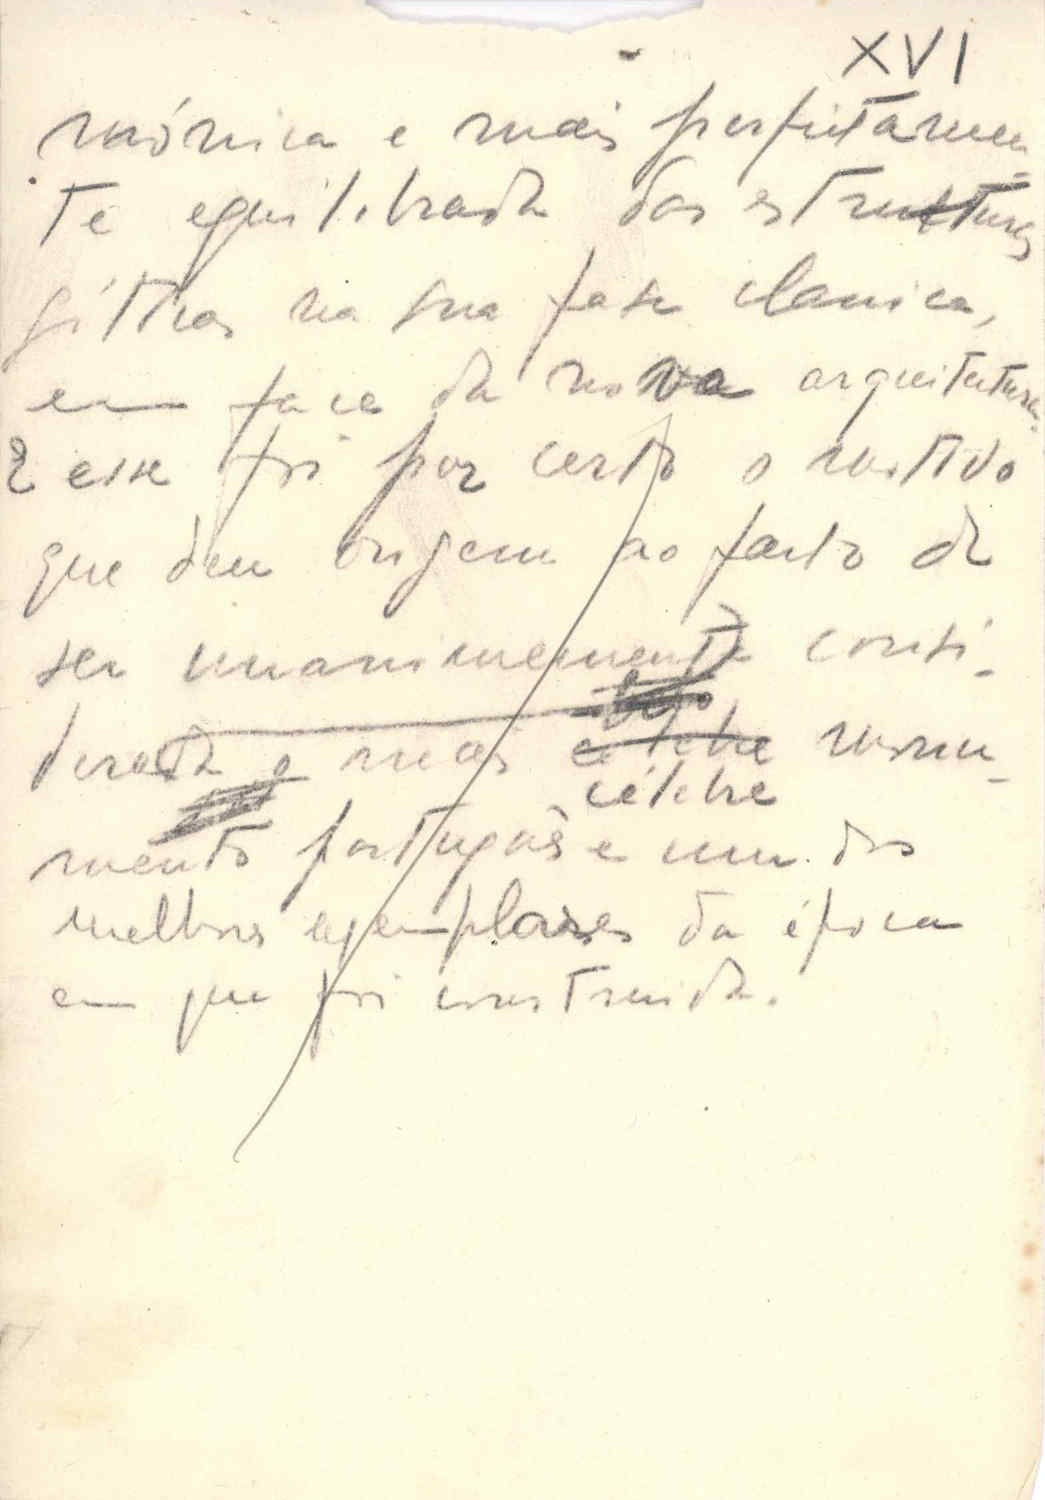 XVI
mónica e mais perfeitamen-
te equilibrada das estruturas
góticas na sua fase classica,
em face da nova arquitectura.
E esse foi por certo o motivo
que deu origem ao facto de
ser unanimemente consi-
derada o mais celebre monu-
célebre
mento português e um dos
melhores exemplares da época
em que foi construida.